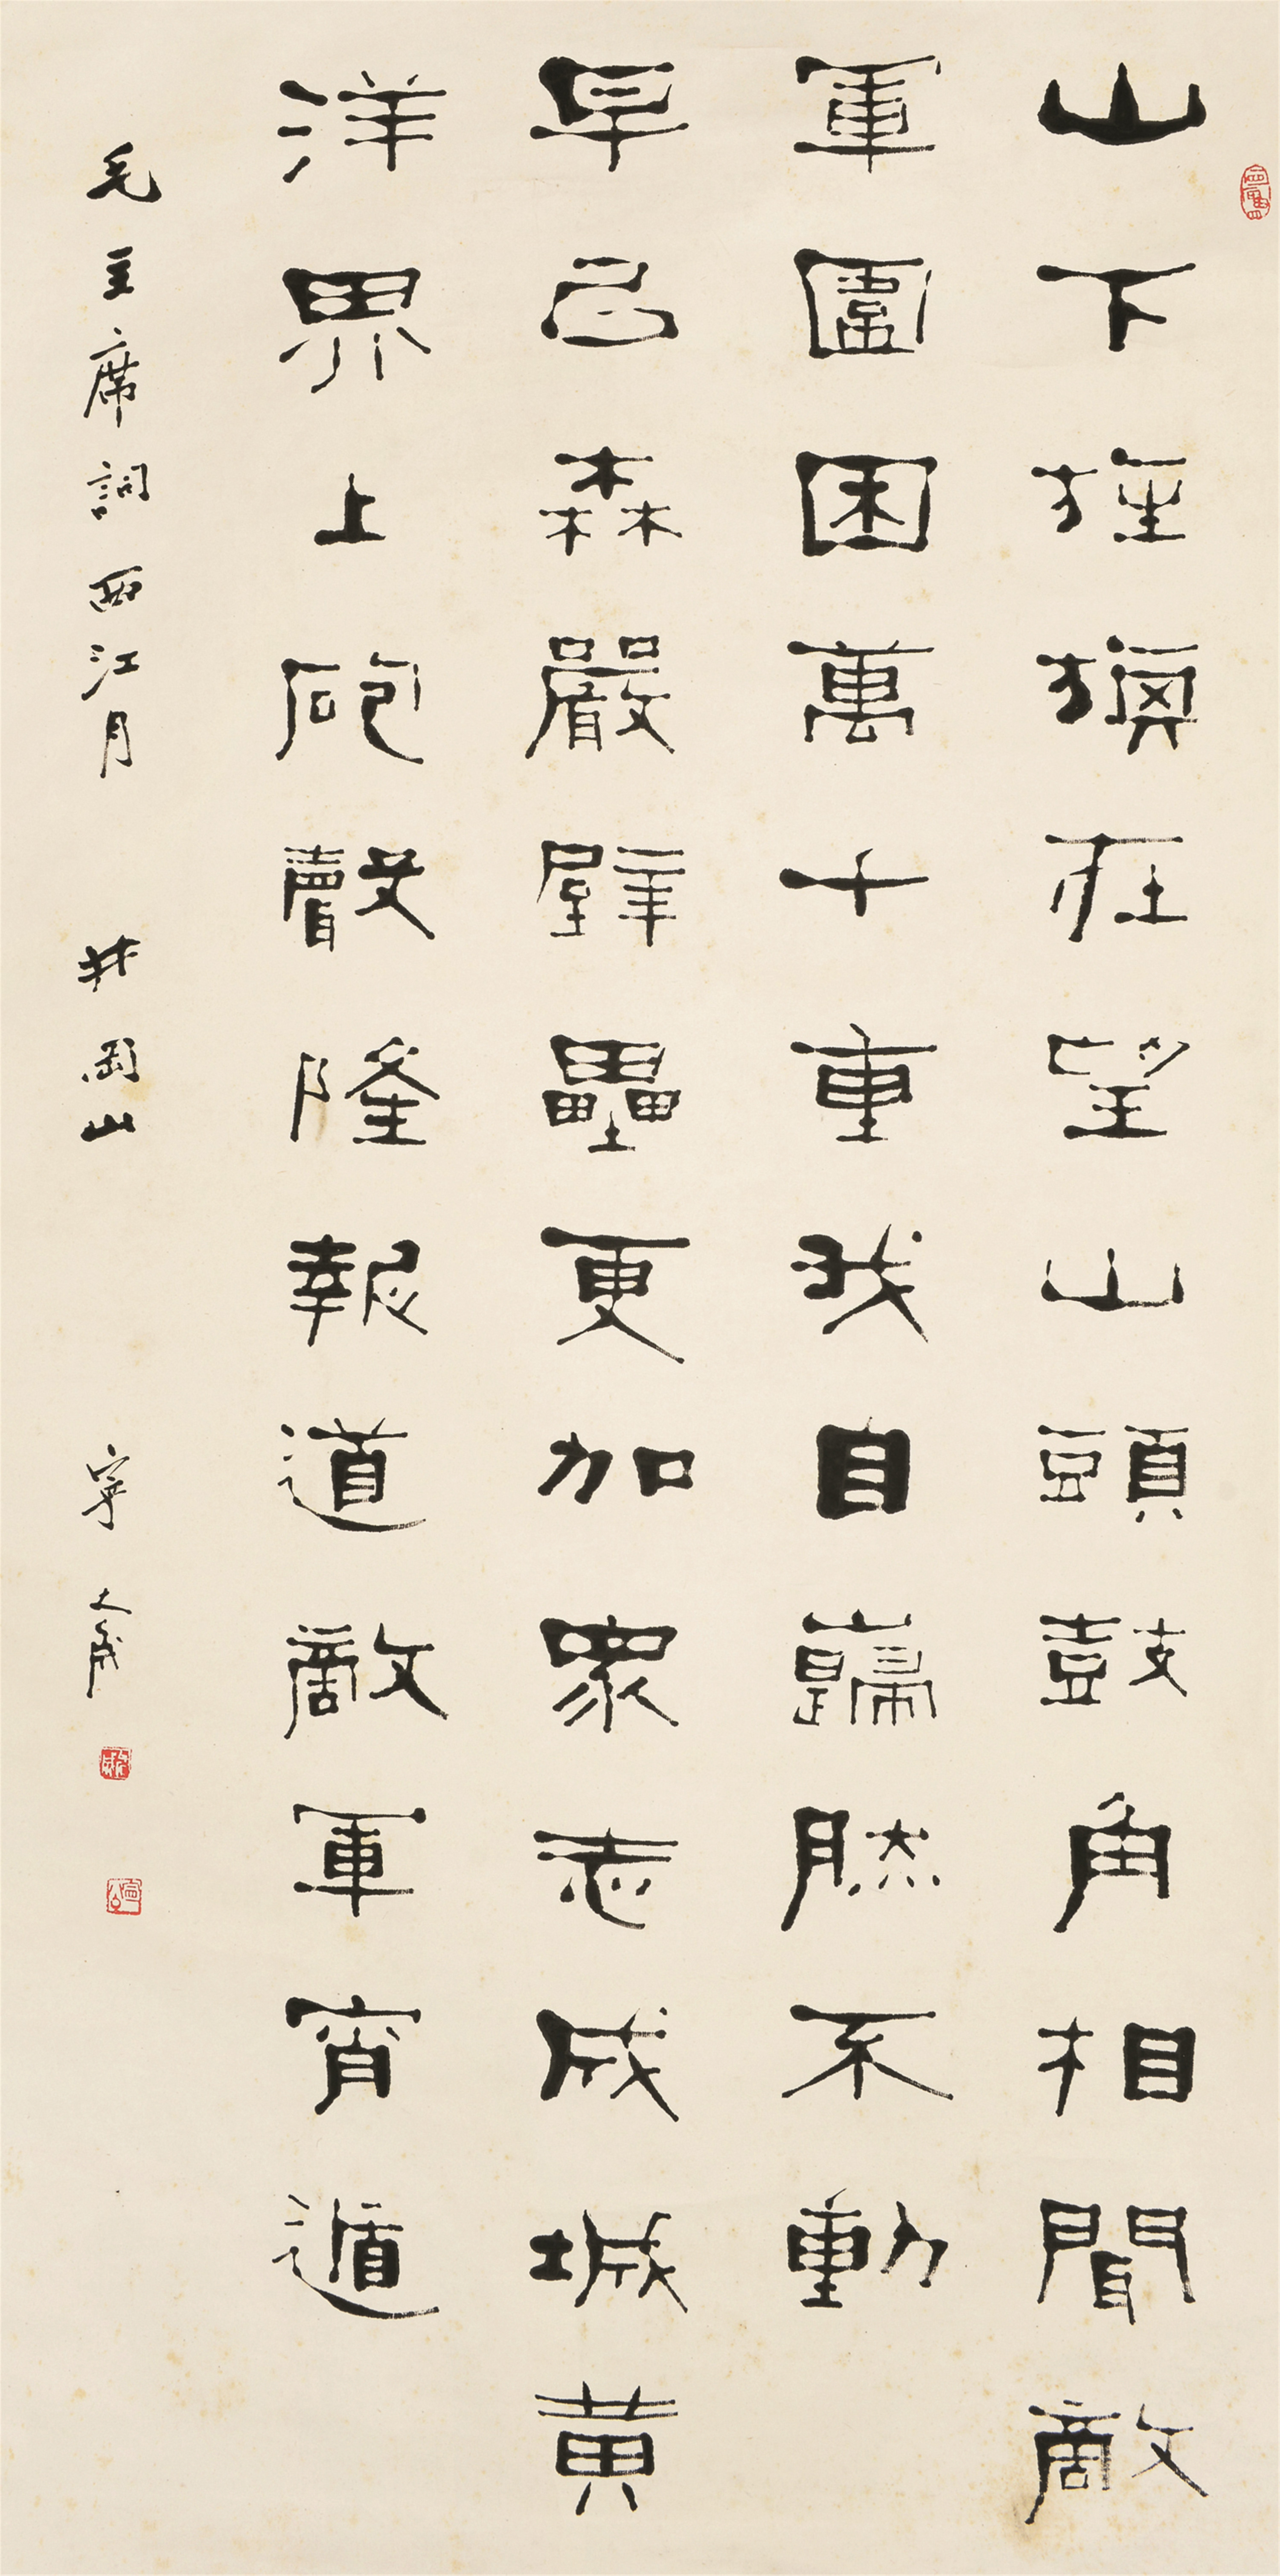 山下旌旗在望山頭鼓角相聞敵
軍圍困萬千重我自巋然不動
早已森嚴壁壘更加衆志成城黄
洋界上砲聲隆報道敵軍宵遁
毛主席詞西江月 井岡山 寧斧成